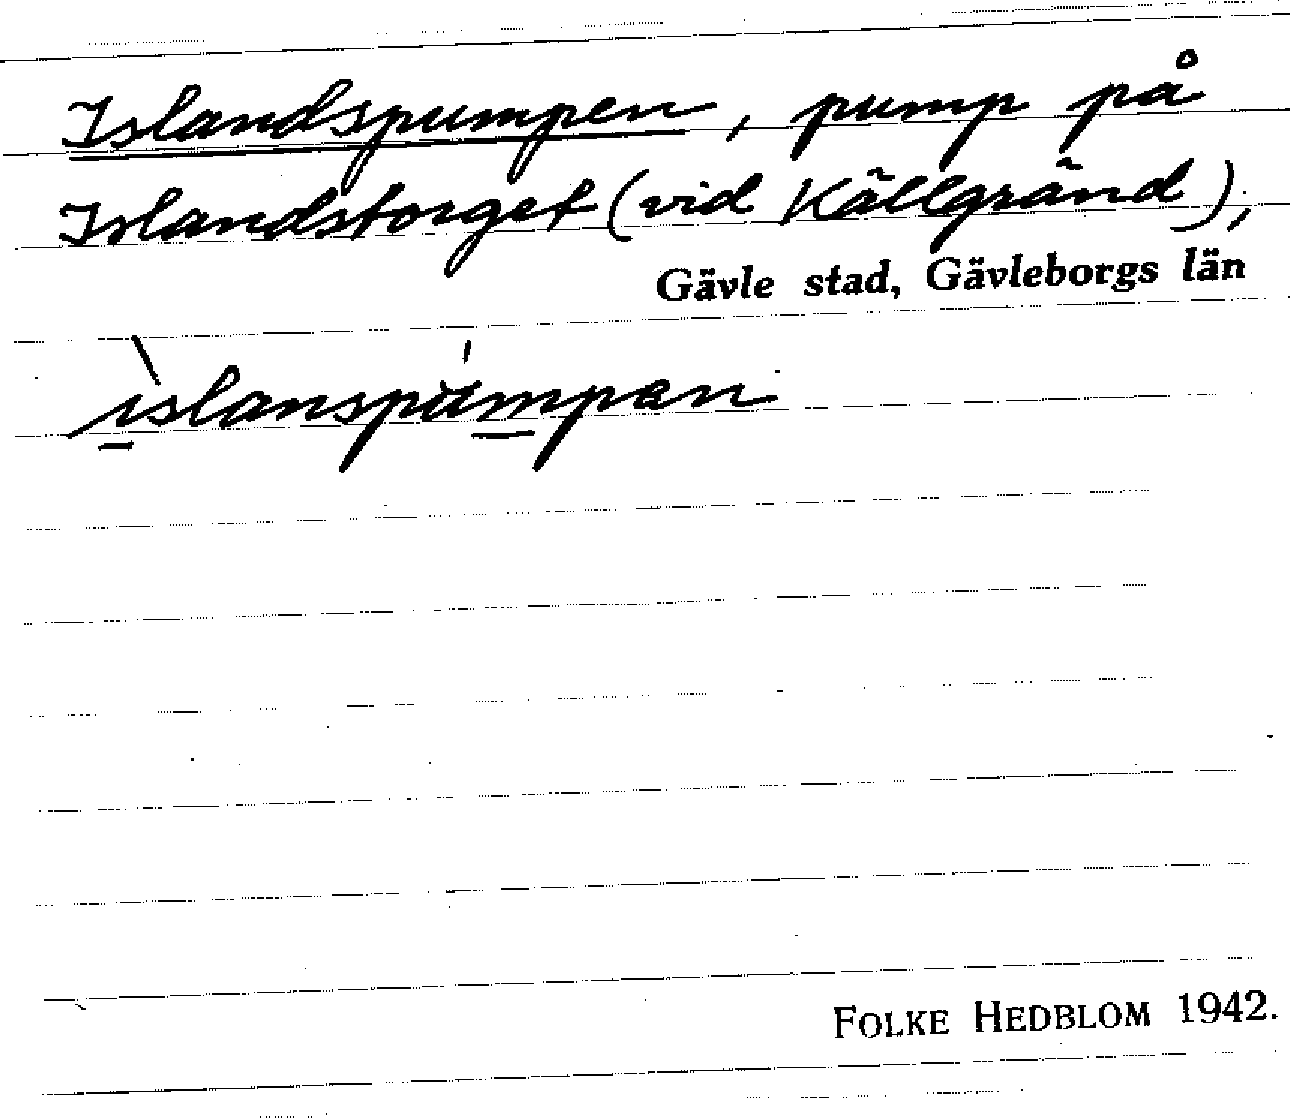 Islandspumpen, pump på
Islandstorget (vid Källgränd),
Gävle stad, Gävleborgs län
ìslanspú̈mpən
FOLKE HEDBLOM 1942.